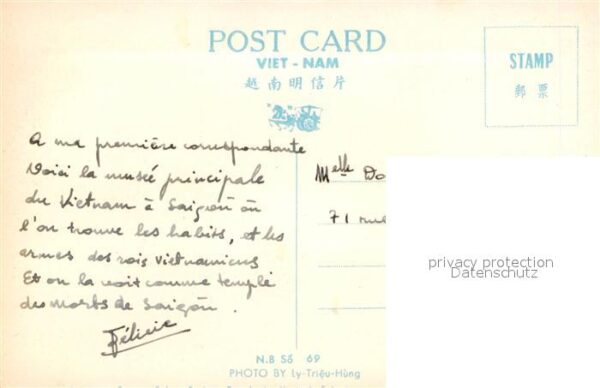 POST CARD
VIET - NAM
越南明信片
STAMP
郵票
A ma première correspondante
Voici la musé principale
du Vietnam à Saigon où
l'on trouve les habits, et les
armes des rois vietnamiens
Et on la voit comme temple
des morts de Saigon.
Félicie
Melle Do
71 rue
privacy protection
Datenschutz
N.B Số 69
PHOTO BY Ly-Triệu-Hùng